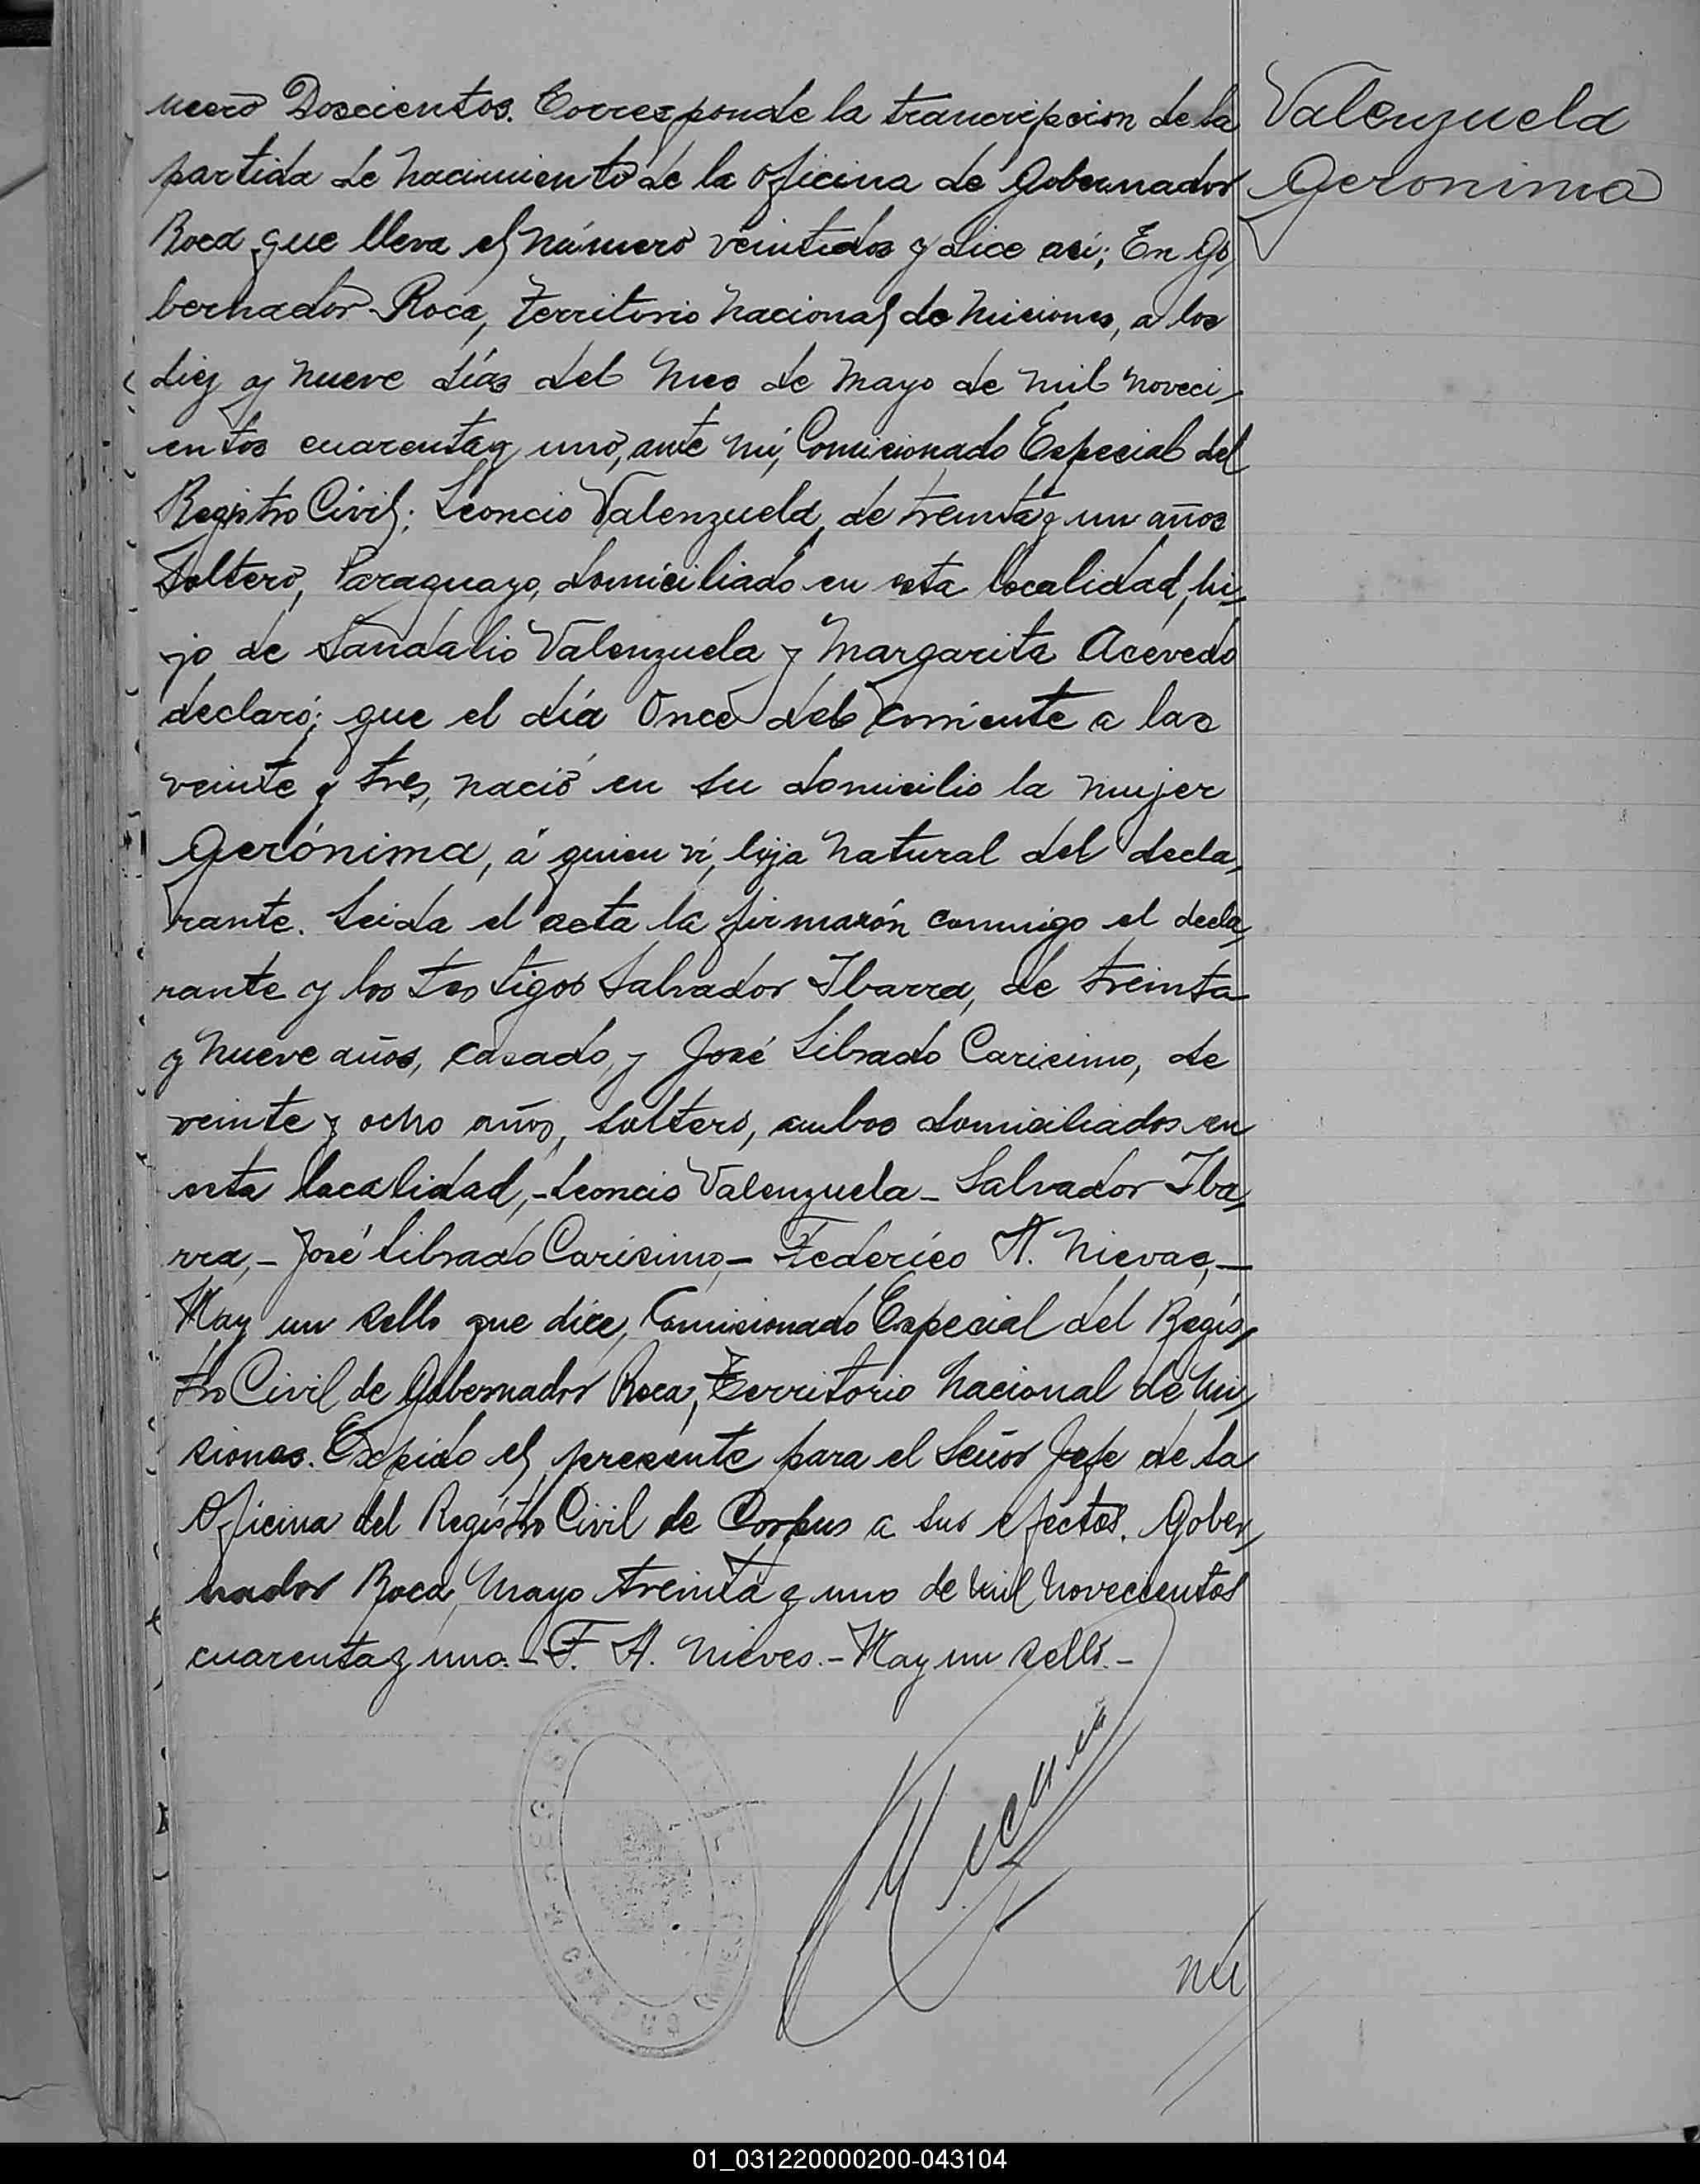 mero Doscientos. Corresponde la trancripcion de la
partida de nacimiento de la oficina de Gobernador
Roca que lleva el número veintidos y dice asi; En Go,
bernador Roca, Territorio Nacional de Misiones, a los
diez y nueve días del mes de Mayo de mil noveci,
entos cuarenta y uno, ante mí, Comicionado Especial del
Registro Civil; Leoncio Valenzuela, de treinta y un años
Soltero, Paraguayo, domiciliado en esta localidad, hi,
jo de Sandalio Valenzuela y Margarita Acevedo
declaró; que el día Once del corriente a las
veinte y tres, nació en su domicilio la mujer
Gerónima, á quien ví, hija natural del decla,
rante. Leida el acta la firmarón conmigo el decla,
rante y los testigos Salvador Ibarra, de treinta
y nueve años, casado, y José Librado Caricimo, de
veinte y ocho años, soltero, ambos domiciliados en
esta localidad,-Leoncio Valenzuela- Salvador Iba,
rra,- José Librado Caricimo,- Federico A. Nievas,-
Hay un sello que dice, Comicionado Especial del Regís,
tro Civil de Gobernador Roca, Territorio Nacional de Mi,
siones. Expido el presente para el Señor Jefe de la
Oficina del Regístro Civil de Corpus a sus efectos. Gober,
nador Roca, Mayo treinta y uno de mil novecientos
cuarenta y uno.- F. A. Nieves.- Hay un sello.-
Valenzuela
Geronima
REGISTRO CIVIL
CORPUS
nú
01_031220000200-043104